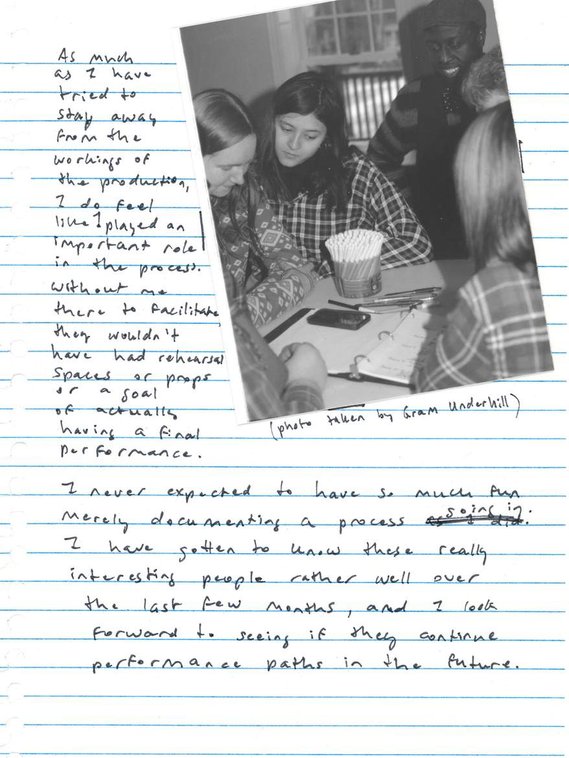 As much
as I have
tried to
stay away
from the
workings of
the production,
I do feel
like I played an
important role
in the process.
Without me
there to facilitate
they wouldn't
have had rehearsal
spaces or props
or a goal
of actually
having a final
performance.
(photo taken by Gram Underhill)
I never expected to have so much fun
merely documenting a process as I did.
going in.
I have gotten to know these really
interesting people rather well over
the last few months, and I look
forward to seeing if they continue
performance paths in the future.